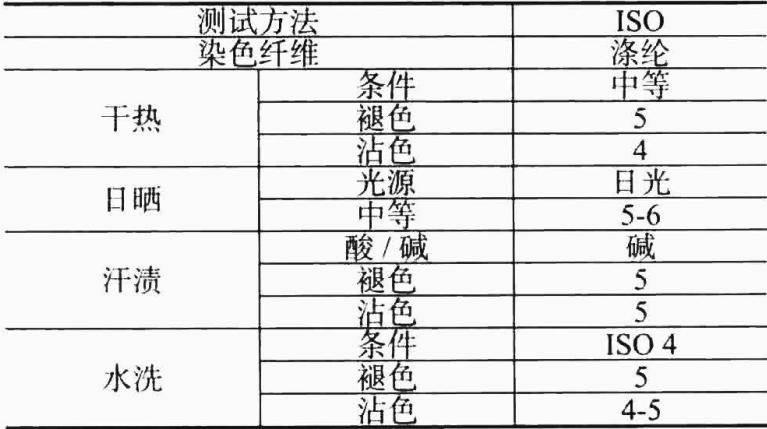 测试方法 ISO
染色纤维 涤纶
干热 条件 中等
褪色 5
沾色 4
日晒 光源 日光
中等 5-6
汗渍 酸 / 碱 碱
褪色 5
沾色 5
水洗 条件 ISO 4
褪色 5
沾色 4-5